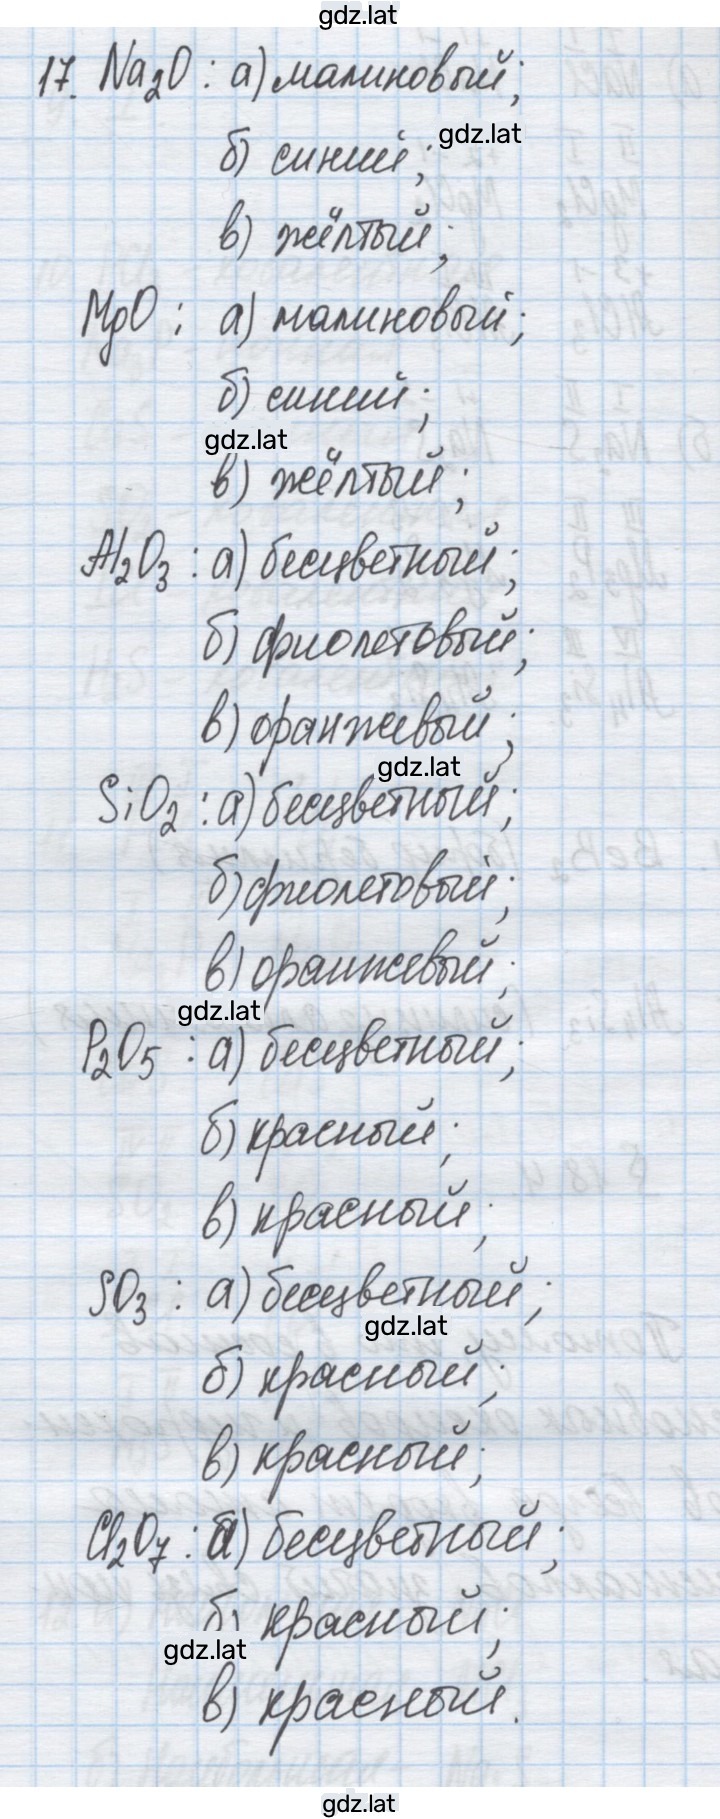 gdz.lat
17. Na₂O : а) малиновый;
б) синий;
gdz.lat
в) жёлтый;
MgO : а) малиновый;
б) синий;
gdz.lat
в) жёлтый;
Al₂O₃ : а) бесцветный;
б) фиолетовый;
в) оранжевый;
gdz.lat
SiO₂ : а) бесцветный;
б) фиолетовый;
в) оранжевый;
gdz.lat
P₂O₅ : а) бесцветный;
б) красный;
в) красный;
SO₃ : а) бесцветный;
gdz.lat
б) красный;
в) красный;
Cl₂O₇ : а) бесцветный;
б) красный;
gdz.lat
в) красный.
gdz.lat